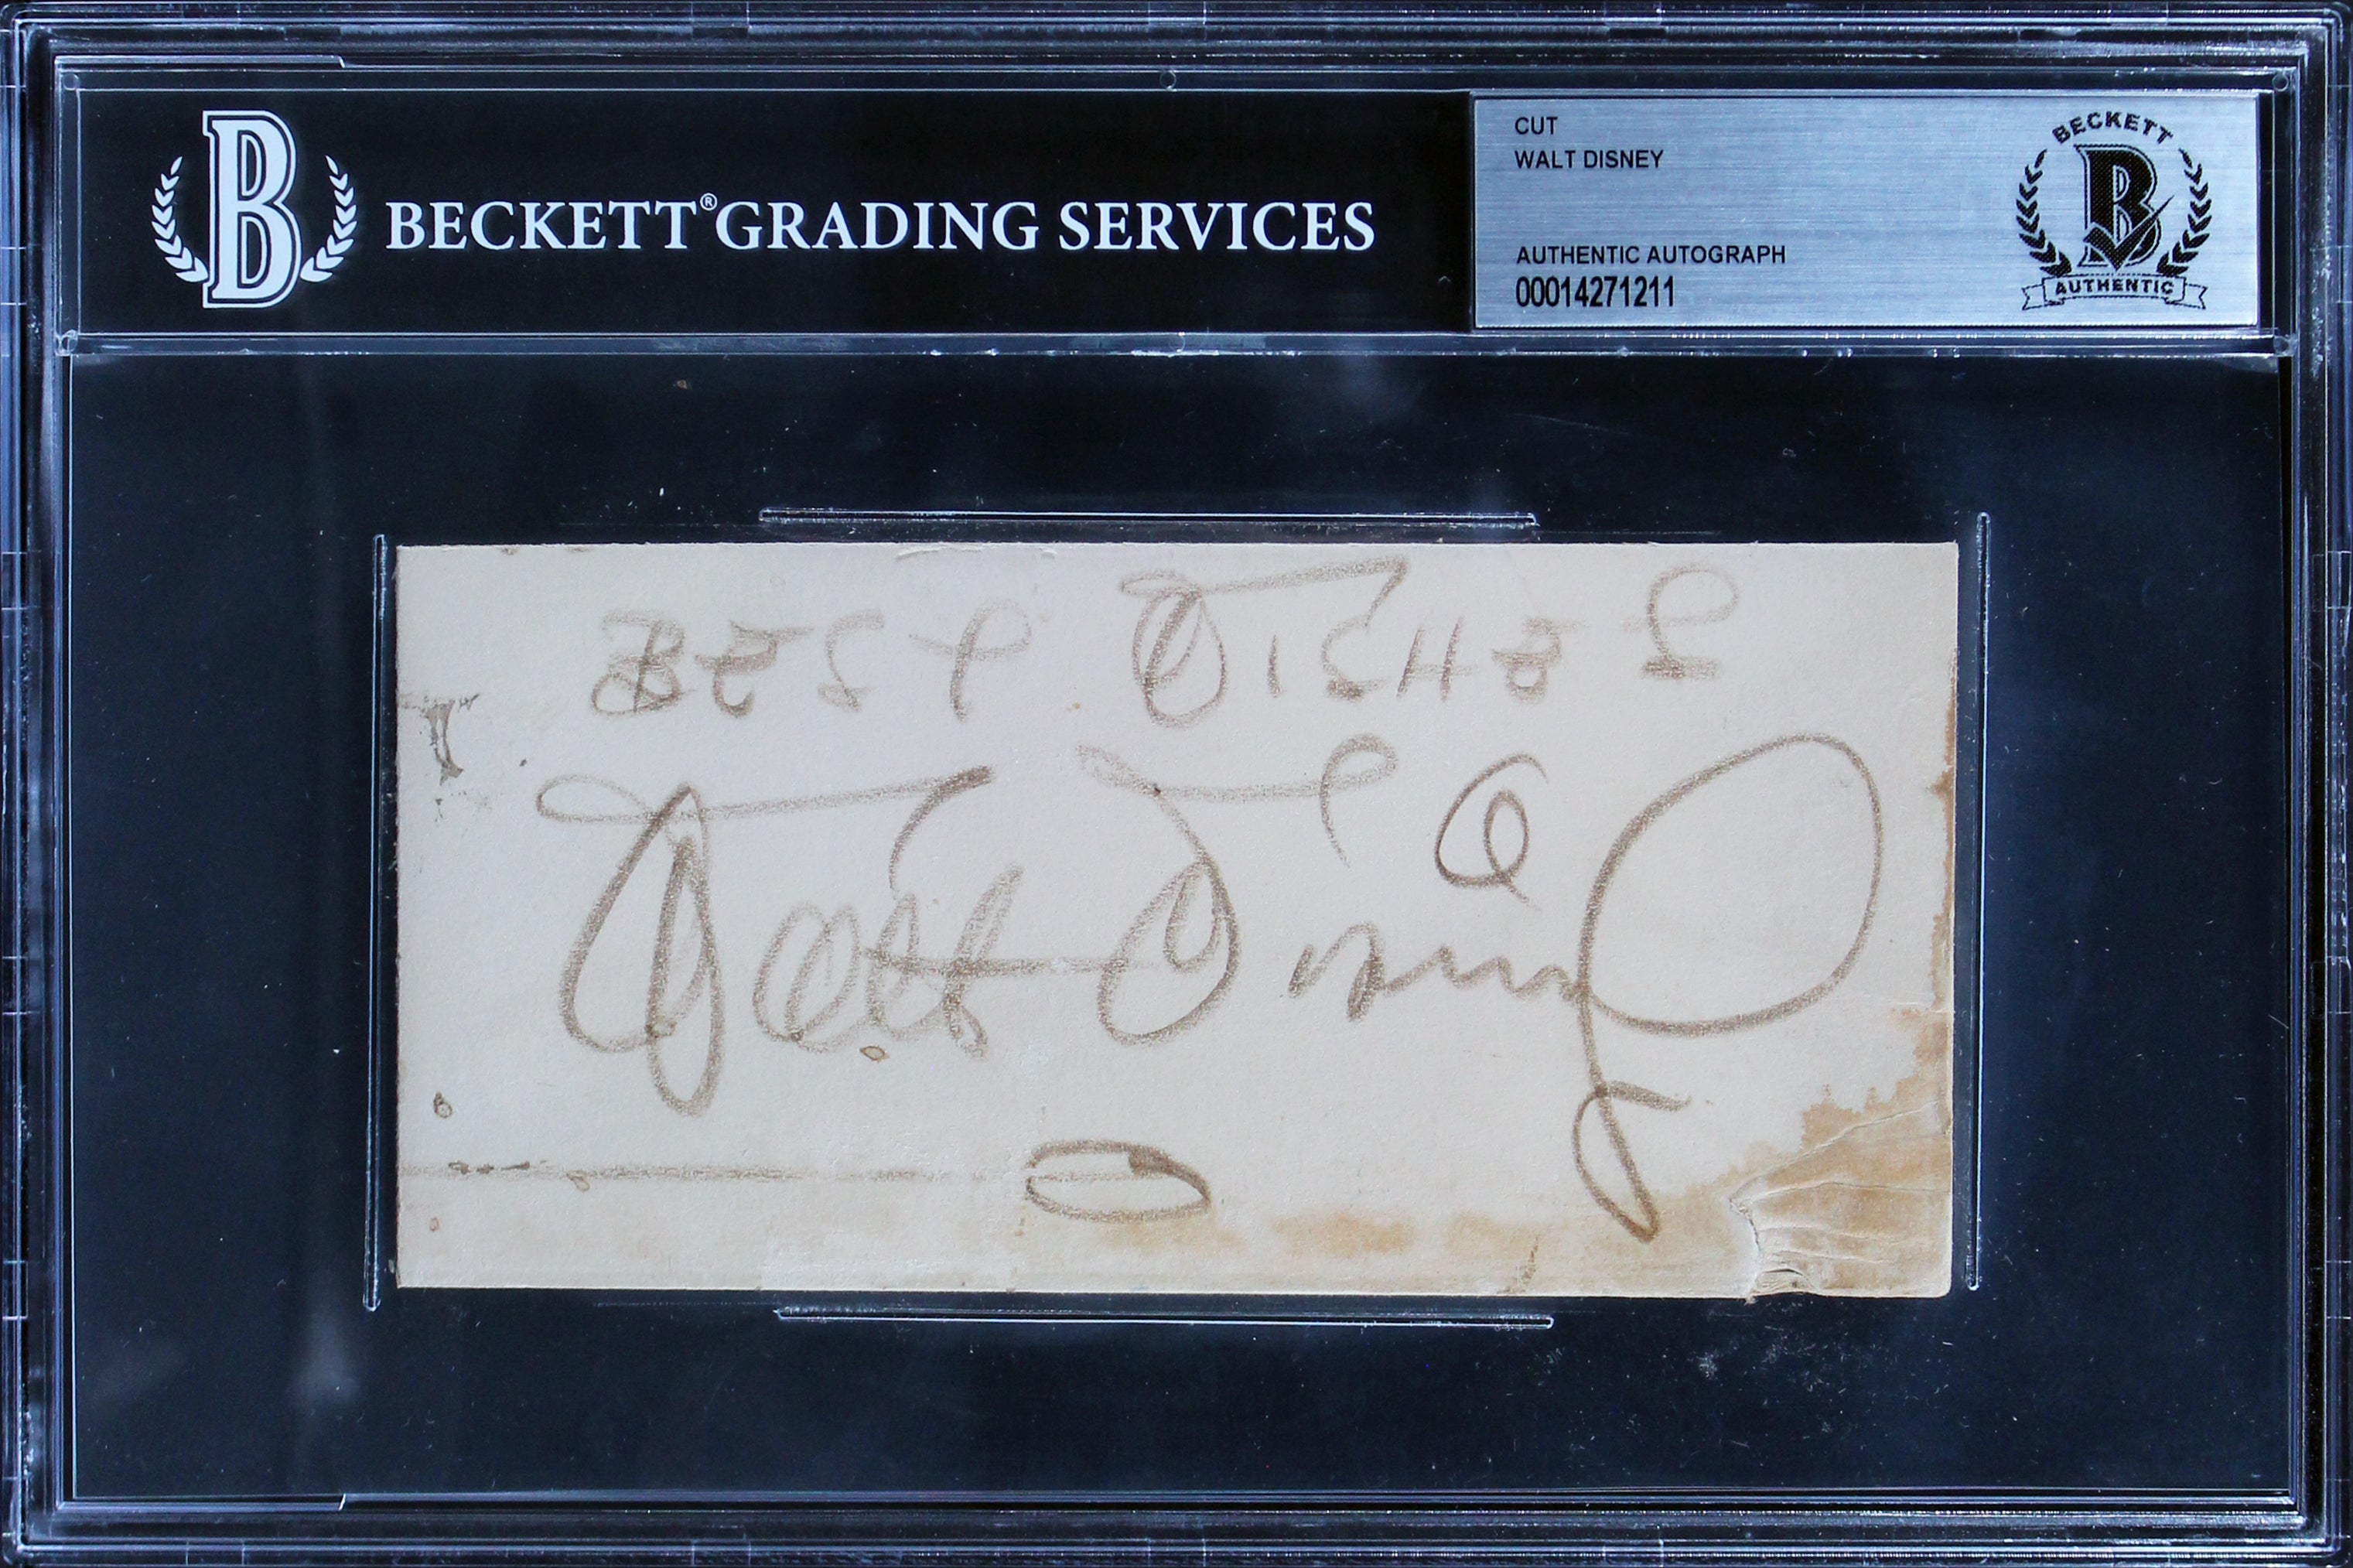 BECKETT® GRADING SERVICES
CUT
WALT DISNEY
AUTHENTIC AUTOGRAPH
00014271211
BECKETT
B
AUTHENTIC
B
BEST WISHES
Walt Disney